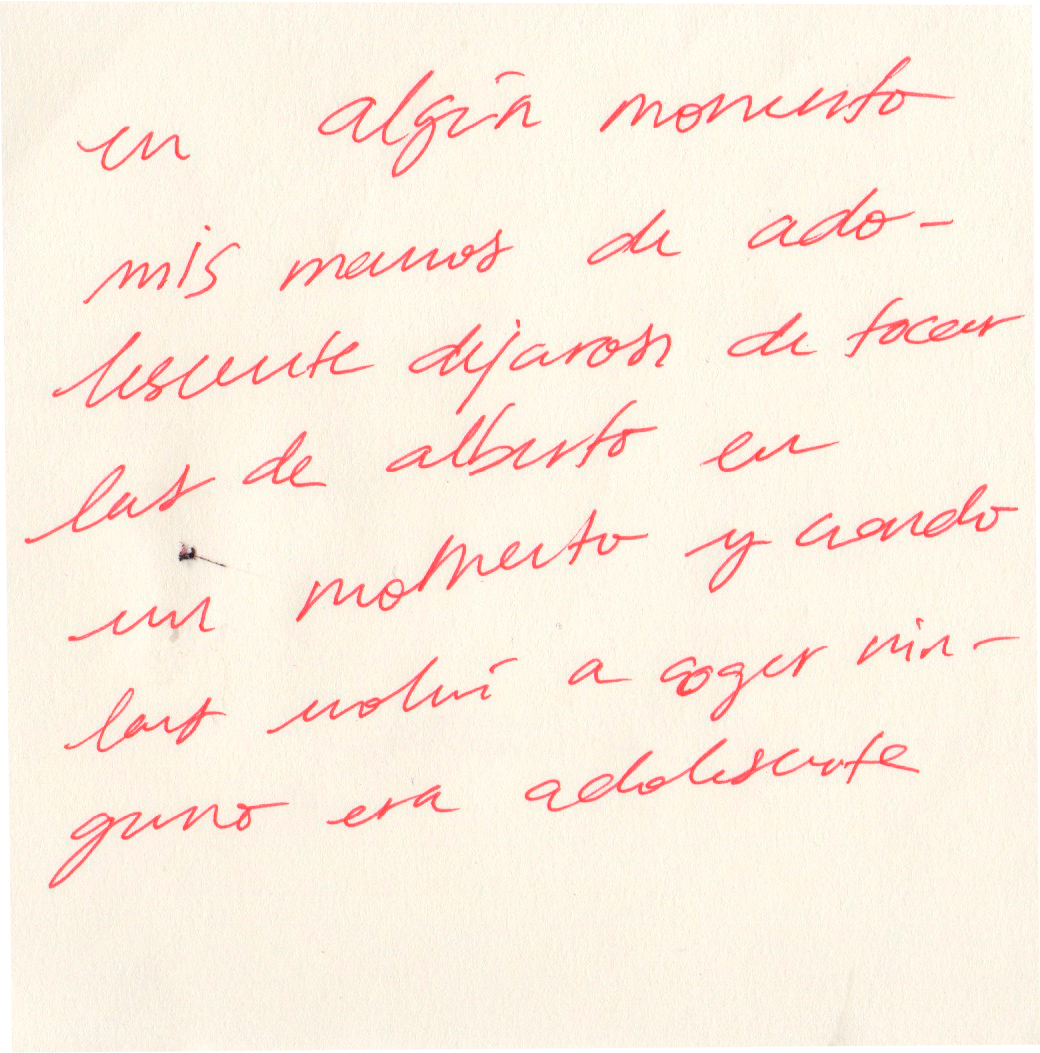 en algún momento
mis manos de ado-
lescente dejaron de tocar
las de alberto en
un momento y cuando
las volví a coger nin-
guno era adolescente